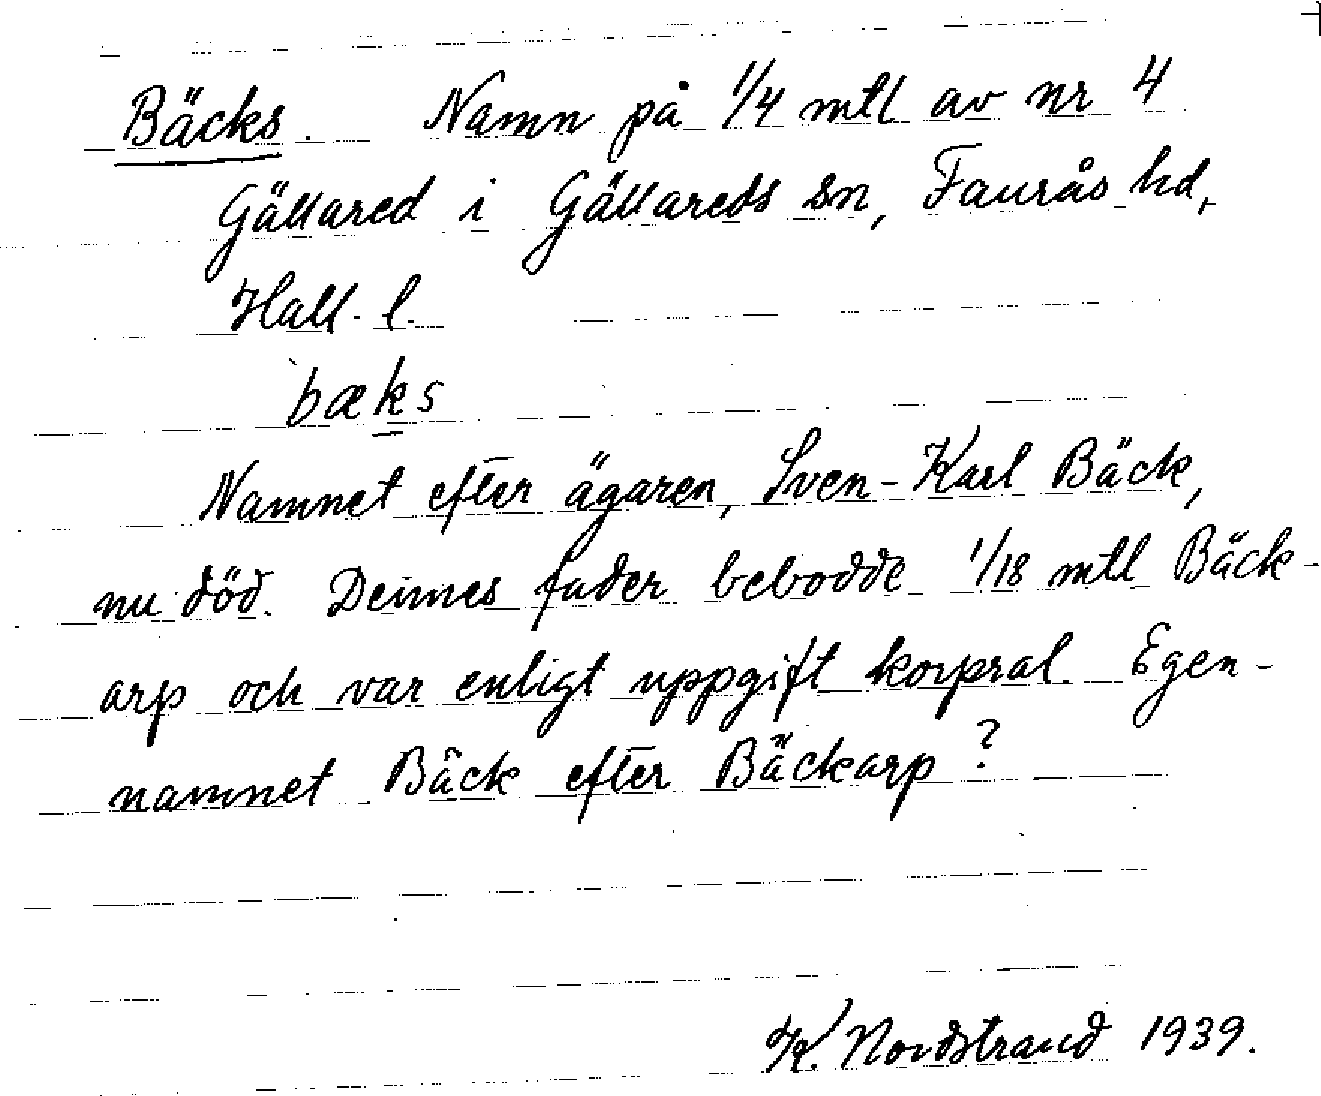 Bäcks. Namn på 1/4 mtl av nr 4
Gällared i Gällareds sn, Faurås hd,
Hall. l.
bæks
Namnet efter ägaren, Sven-Karl Bäck,
nu död. Dennes fader bebodde 1/18 mtl Bäck-
arp och var enligt uppgift korpral. Egen-
namnet Bäck efter Bäckarp?
K. Nordstrand 1939.